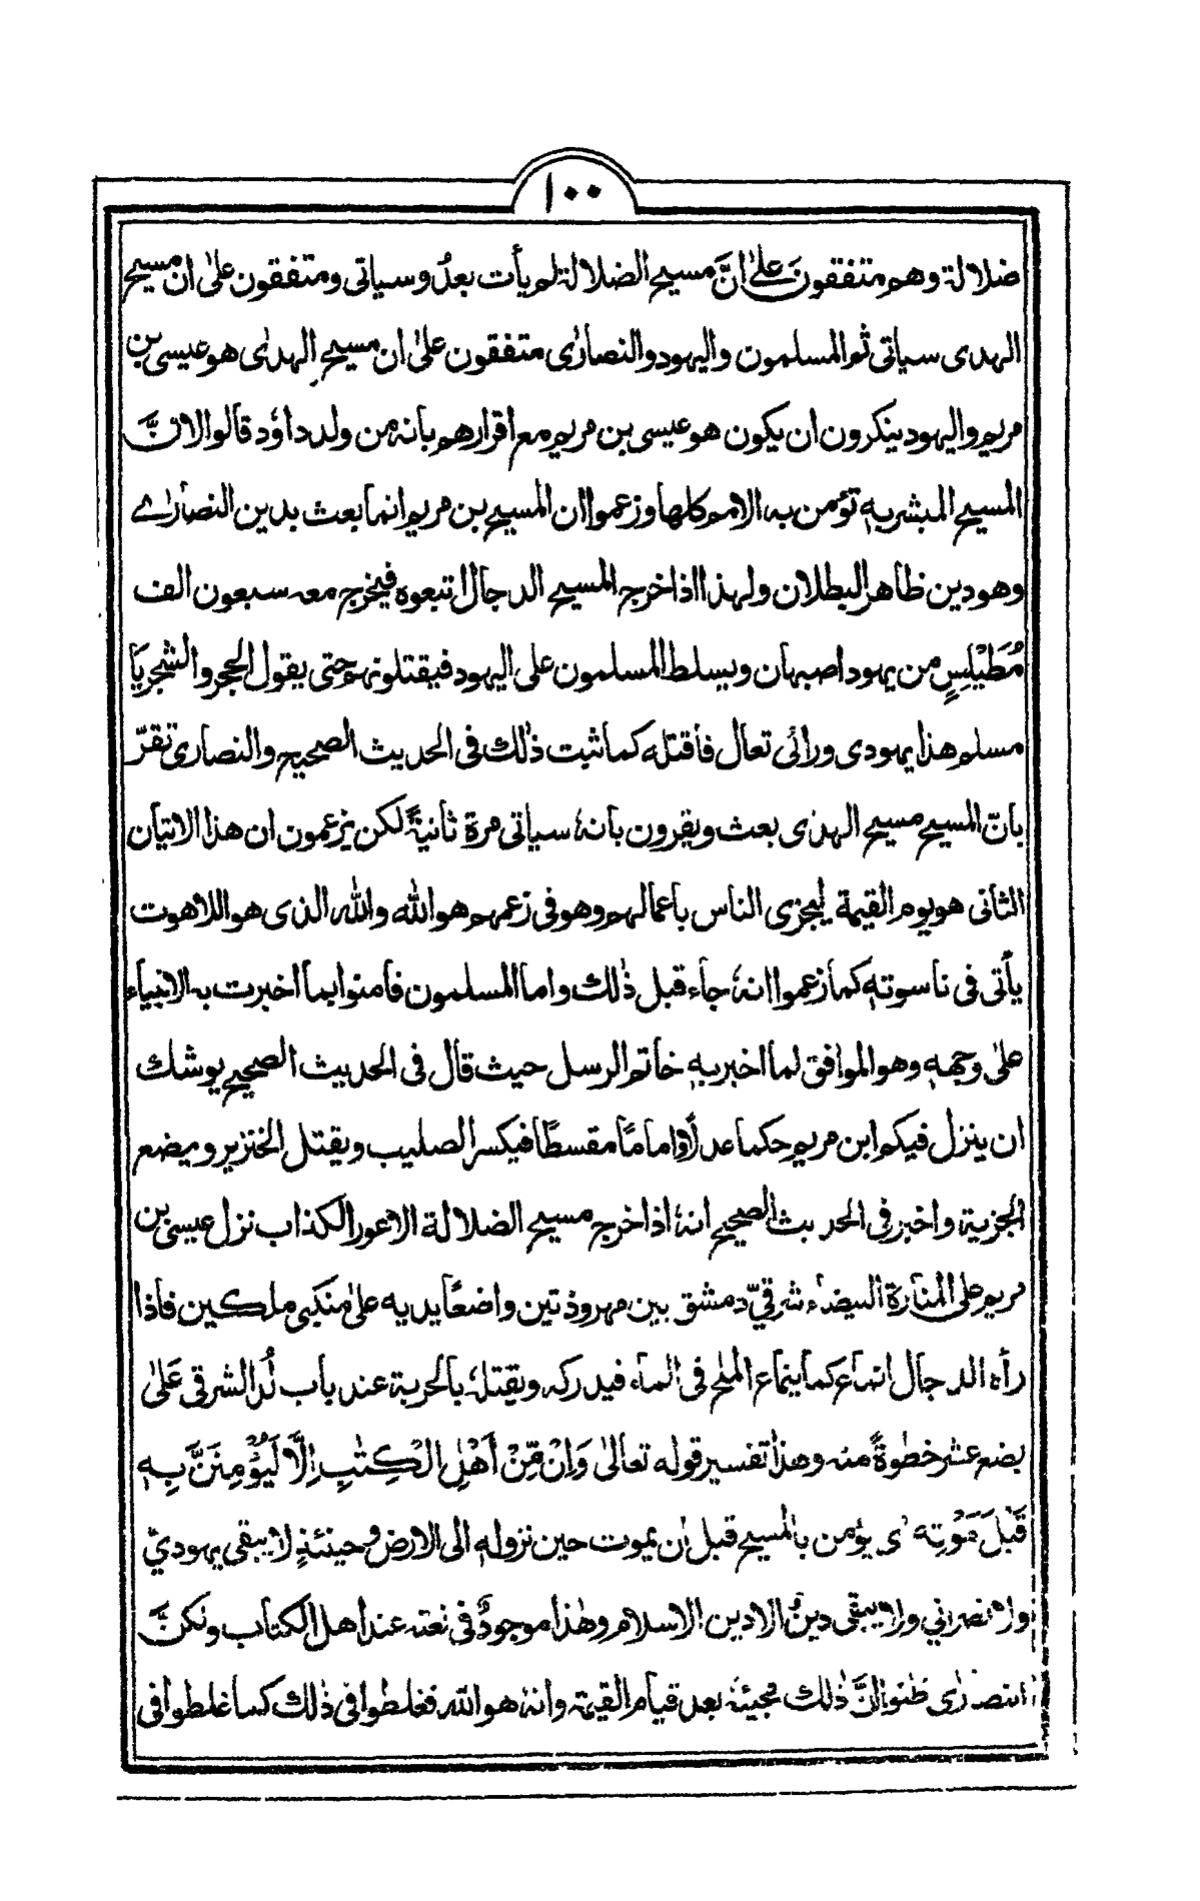 ١٠٠
ضلالة وهم متفقون على انَّ مسيح الضلالة لم يأت بعدُ وسياتى ومتفقون على ان مسيح
الهدى سياتى ثم المسلمون واليهود والنصارٰى متفقون علىٰ ان مسيح الهدٰى هو عيسى بن
مريم واليهود ينكرون ان يكون هو عيسى بن مريم مع اقرارهم بانه من ولد داوٗد قالوا لانَّ
المسيح المبشر بهٖ تؤمن به الامم كلها وزعموا ان المسيح بن مريم انما بعث بدين النصارٰے
وهو دين ظاهر البطلان ولهذا اذا خرج المسيح الدجال اتبعوه فيخرج معه سبعون الف
مُطَيْلِسٍ من يهود اصبهان ويسلط المسلمون على اليهود فيقتلونهم حتى يقول الحجر والشجر يَا
مسلم هذا يهودى ورائى تعال فاقتله كما ثبت ذٰلك فى الحديث الصحيح والنصارى تقرّ
بانّ المسيح مسيح الهدٰى بعث ويقرون بانهٗ سياتى مرة ثانيةً لكن يزعمون ان هذا الاتيان
الثانى هو يوم القيمة ليجزى الناس باعمالهم وهو فى زعمهم هو الله والله الذى هو اللاهوت
يأتى فى ناسوتهٖ كما زعموا انهٗ جاء قبل ذٰلك واما المسلمون فامنوا بما اخبرت به الانبياء
علىٰ وجههٖ وهو الموافق لما اخبر بهٖ خاتم الرسل حيث قال فى الحديث الصحيح يوشك
ان ينزل فيكم ابن مريم حكما عدلاً واماما مقسطًا فيكسر الصليب ويقتل الخنزير ويضع
الجزية واخبر فى الحديث الصحيح انهٗ اذا خرج مسيح الضلالة الاعور الكذاب نزل عيسى بن
مريم على المنارة البيضاء شرقيّ دمشق بين مهروذتين واضعًا يديه علىٰ منكبى ملكين فاذا
رأه الدجال انماع كما ينماع الملح فى الماء فيدركه ويقتلهٗ بالحربة عند باب لُد الشرقى عَلىٰ
بضع عشر خطوةً منه وهذا تفسير قوله تعالىٰ وَاِنْ مِّنْ اَهْلِ الْكِتٰبِ اِلَّا لَيُؤْمِنَنَّ بِهٖ
قَبْلَ مَوْتِهٖ اى يؤمن بالمسيح قبل ان يموت حين نزولهٖ الى الارض وحينئذٍ لا يبقى يهوديّ
ولا نصراني ولا يبقى دينٌ الا دين الاسلام وهٰذا موجودٌ فى نعته عند اهل الكتاب ولكنَّ
النصارٰى ظنوا انَّ ذٰلك مجيئهٗ بعد قيام القيمة وانهٗ هو الله فغلطوا فى ذٰلك كما غلطوا فى